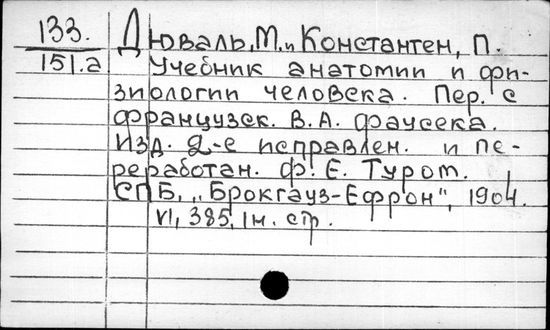 133. Дюваль, М. и Константен, П.
151.а Учебник анатомии и фи-
зиологии человека. Пер. с
французск. В. А. Фаусека.
Изд. 2-е исправлен. и пе-
реработан. Ф. Е. Тур от.
СПБ, „Брокгауз-Ефрон", 1904.
VI, 385, 1 н. стр.